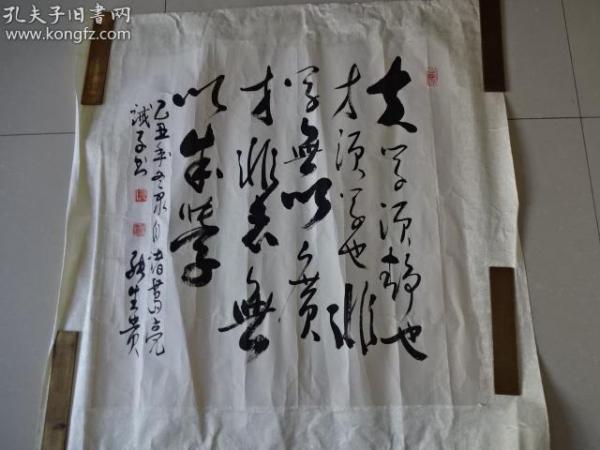 孔夫子旧书网
www.kongfz.com
夫学须静也
才须学也非
学无以广
才非志无
以成学
乙丑年冬录自诸葛亮
诫子书
张生贵